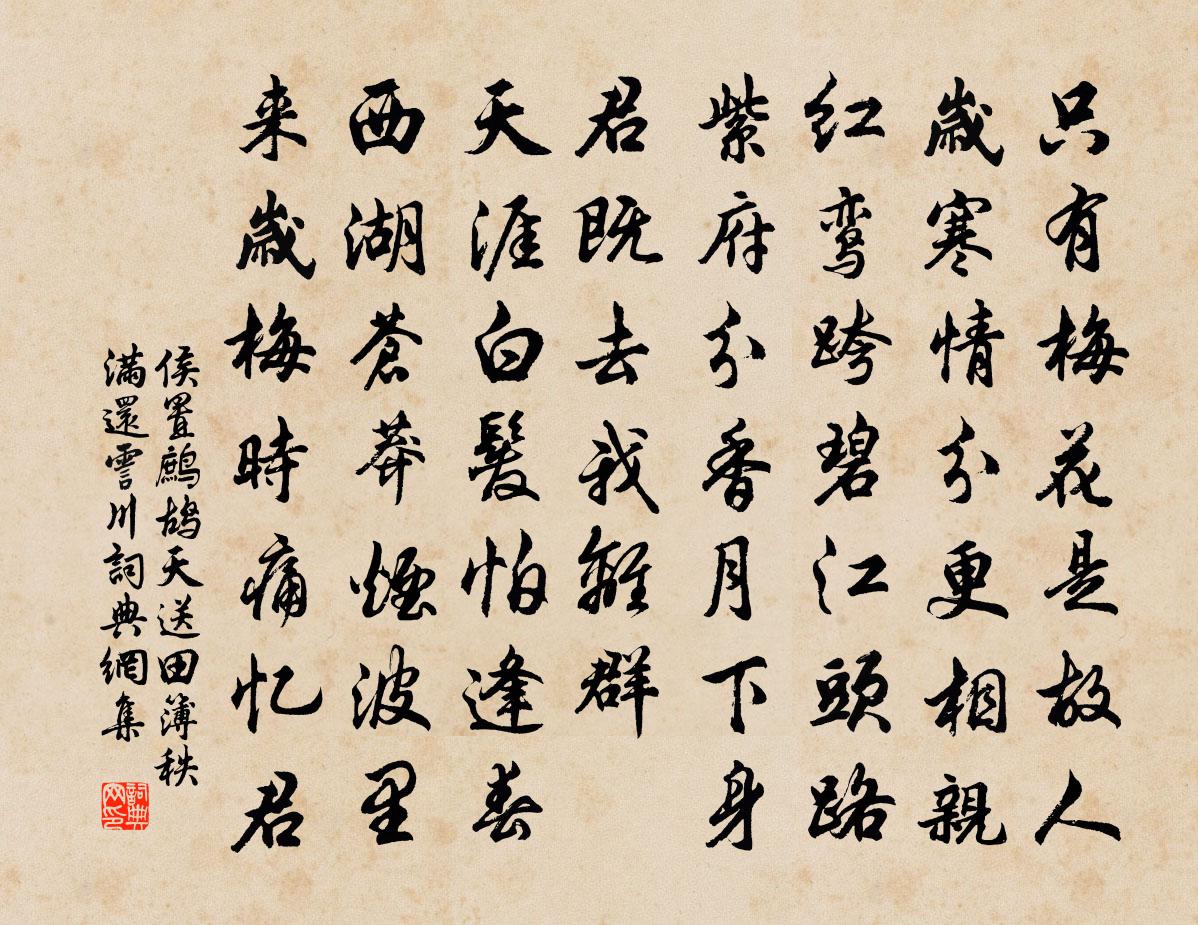 只有梅花是故人
歲寒情分更相親
红鸾跨碧江頭路
紫府分香月下身
君既去我離群
天涯白髮怕逢春
西湖蒼莽煙波里
来歲梅時痛忆君
侯置鷓鴣天送田簿秩
滿還霅川詞典網集
詞典网印